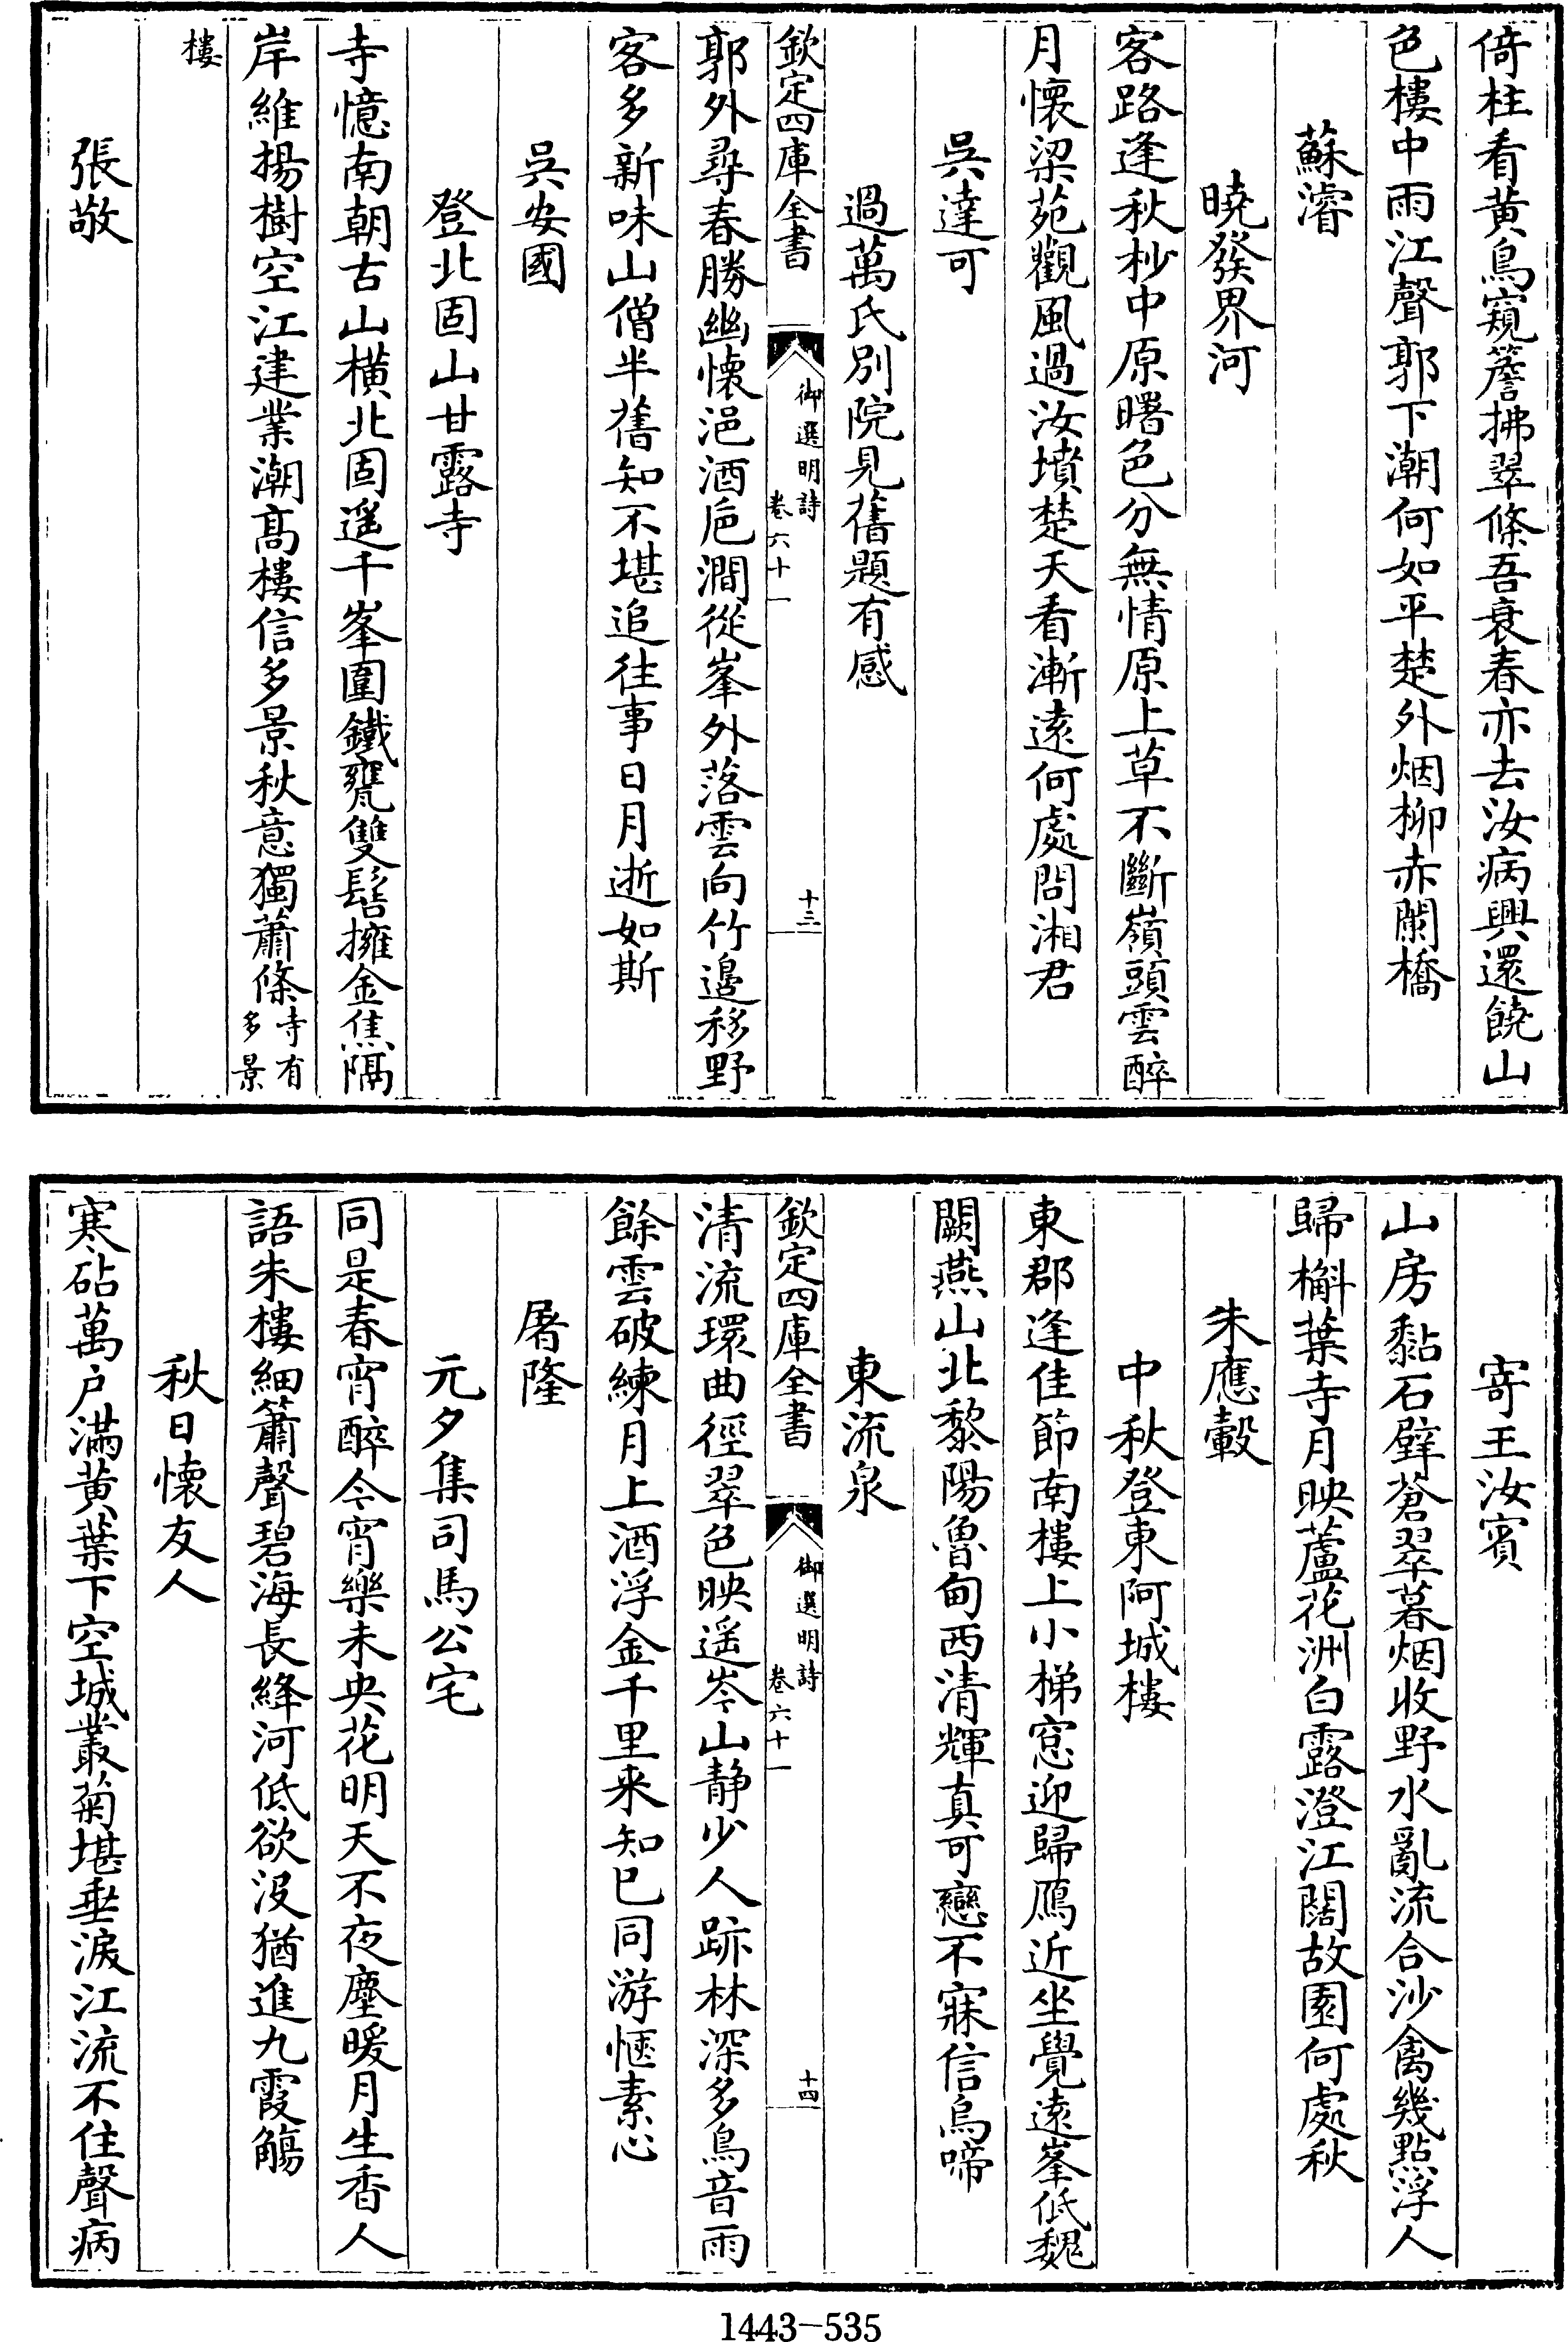 倚柱看黄鳥窺簷拂翠條吾衰春亦去汝病興還饒山
色樓中雨江聲郭下潮何如平楚外烟柳赤闌橋
蘇濬
曉發界河
客路逢秋杪中原曙色分無情原上草不斷嶺頭雲醉
月懷梁苑觀風過汝墳楚天看漸遠何處問湘君
吳達可
過萬氏別院見舊題有感
欽定四庫全書
御選明詩
卷六十一
十三
郭外尋春勝幽懷浥酒巵澗從峯外落雲向竹邉移野
客多新味山僧半舊知不堪追往事日月逝如斯
吳安國
登北固山甘露寺
寺憶南朝古山横北固遥千峯圍鐵甕雙髻擁金焦隔
岸維揚樹空江建業潮髙樓信多景秋意獨蕭條寺有多景
樓
張敬
寄王汝賓
山房黏石壁蒼翠暮烟收野水亂流合沙禽幾點浮人
歸槲葉寺月映蘆花洲白露澄江闊故園何處秋
朱應轂
中秋登東阿城樓
東郡逢佳節南樓上小梯窓迎歸鴈近坐覺遠峯低魏
闕燕山北黎陽魯甸西清輝真可戀不寐信烏啼
東流泉
欽定四庫全書
御選明詩
卷六十一
十四
清流環曲徑翠色映遥岑山静少人跡林深多鳥音雨
餘雲破練月上酒浮金千里来知已同游愜素心
屠隆
元夕集司馬公宅
同是春宵醉今宵樂未央花明天不夜塵暖月生香人
語朱樓細簫聲碧海長絳河低欲沒猶進九霞觴
秋日懷友人
寒砧萬户滿黄葉下空城叢菊堪垂淚江流不住聲病
1443-535